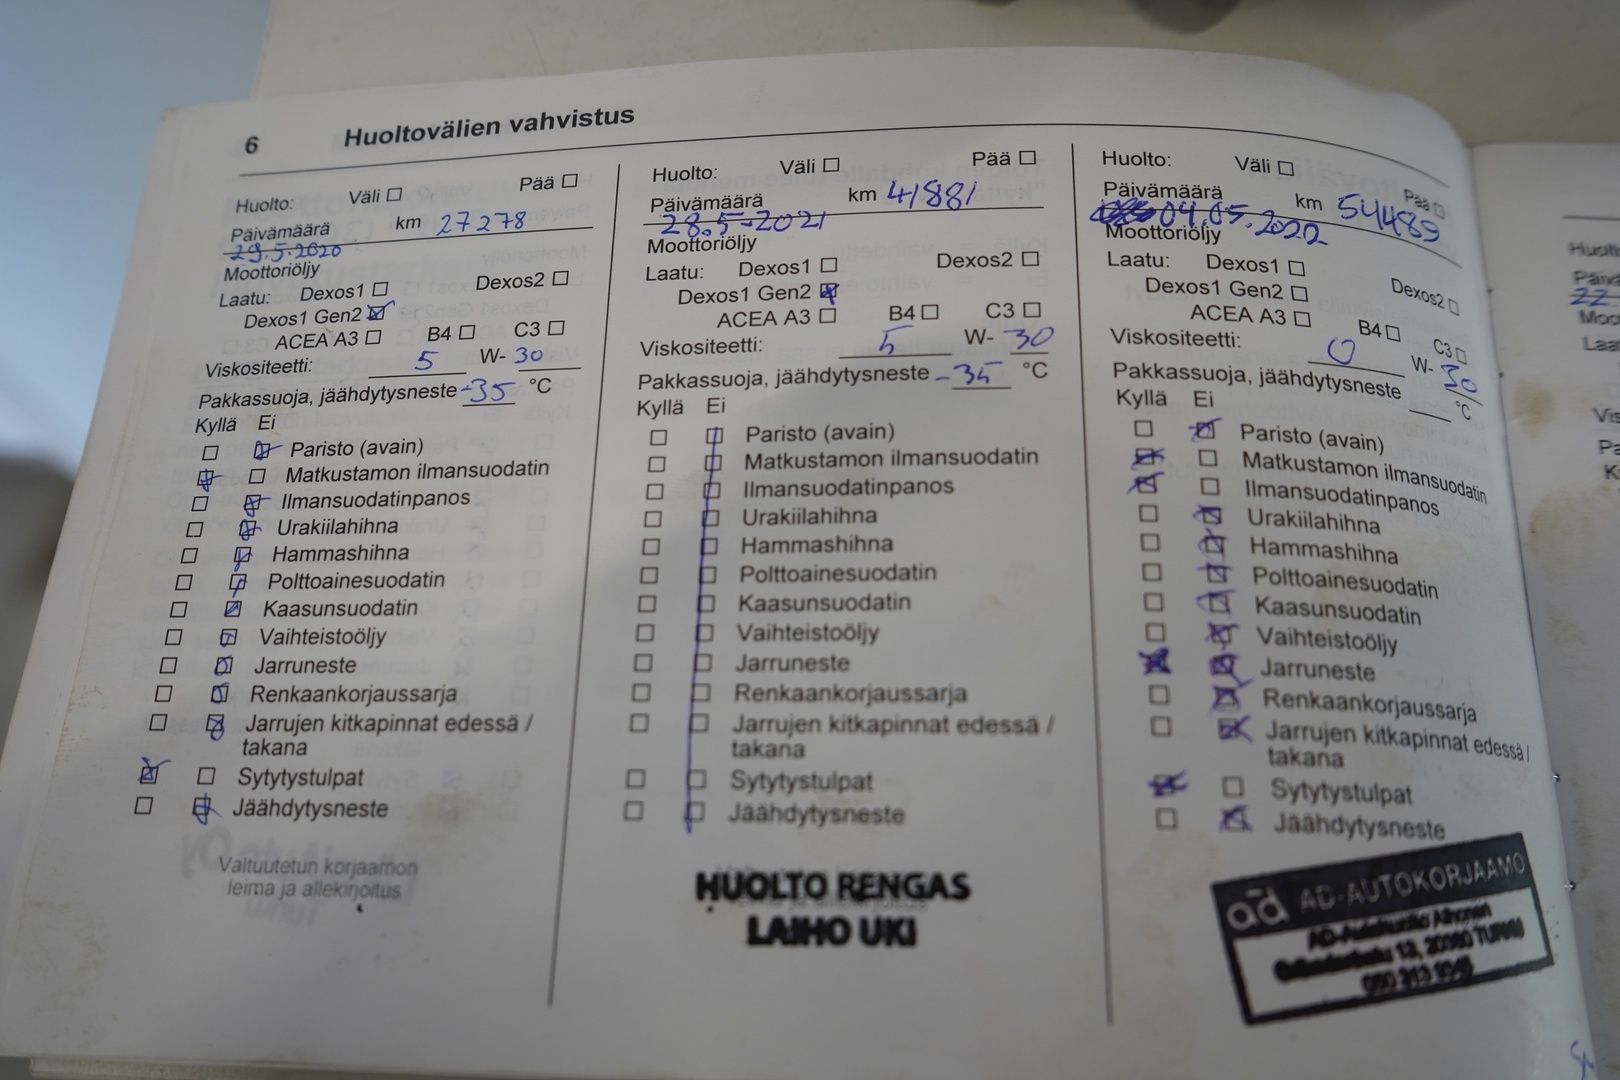 6 Huoltovälien vahvistus
Huolto: Väli ☐ Pää ☐
Päivämäärä km 27278
29.5.2020
Moottoriöljy
Laatu: Dexos1 ☐ Dexos2 ☐
Dexos1 Gen2 ☒
ACEA A3 ☐ B4 ☐ C3 ☐
Viskositeetti: 5 W- 30
Pakkassuoja, jäähdytysneste -35 °C
Kyllä Ei
☐ ☒ Paristo (avain)
☒ ☐ Matkustamon ilmansuodatin
☐ ☒ Ilmansuodatinpanos
☐ ☒ Urakiilahihna
☐ ☒ Hammashihna
☐ ☒ Polttoainesuodatin
☐ ☒ Kaasunsuodatin
☐ ☒ Vaihteistoöljy
☐ ☒ Jarruneste
☐ ☒ Renkaankorjaussarja
☐ ☒ Jarrujen kitkapinnat edessä /
takana
☒ ☐ Sytytystulpat
☐ ☒ Jäähdytysneste
Valtuutetun korjaamon
leima ja allekirjoitus
Huolto: Väli ☐ Pää ☐
Päivämäärä km 41881
28.5-2021
Moottoriöljy
Laatu: Dexos1 ☐ Dexos2 ☐
Dexos1 Gen2 ☒
ACEA A3 ☐ B4 ☐ C3 ☐
Viskositeetti: 5 W- 30
Pakkassuoja, jäähdytysneste -35 °C
Kyllä Ei
☐ ☐ Paristo (avain)
☐ ☐ Matkustamon ilmansuodatin
☐ ☐ Ilmansuodatinpanos
☐ ☐ Urakiilahihna
☐ ☐ Hammashihna
☐ ☐ Polttoainesuodatin
☐ ☐ Kaasunsuodatin
☐ ☐ Vaihteistoöljy
☐ ☐ Jarruneste
☐ ☐ Renkaankorjaussarja
☐ ☐ Jarrujen kitkapinnat edessä /
takana
☐ ☐ Sytytystulpat
☐ ☐ Jäähdytysneste
HUOLTO RENGAS
LAIHO UKI
Huolto: Väli ☐ Pää ☐
Päivämäärä km 54489
04.05.2022
Moottoriöljy
Laatu: Dexos1 ☐ Dexos2 ☐
Dexos1 Gen2 ☐
ACEA A3 ☐ B4 ☐ C3 ☐
Viskositeetti: 0 W- 30
Pakkassuoja, jäähdytysneste °C
Kyllä Ei
☐ ☒ Paristo (avain)
☒ ☐ Matkustamon ilmansuodatin
☒ ☐ Ilmansuodatinpanos
☐ ☒ Urakiilahihna
☐ ☒ Hammashihna
☐ ☒ Polttoainesuodatin
☐ ☒ Kaasunsuodatin
☐ ☒ Vaihteistoöljy
☒ ☒ Jarruneste
☐ ☒ Renkaankorjaussarja
☐ ☒ Jarrujen kitkapinnat edessä /
takana
☒ ☐ Sytytystulpat
☐ ☒ Jäähdytysneste
ad AD-AUTOKORJAAMO
AD-Autohuolto Alhonen
13, 20360 TURKU